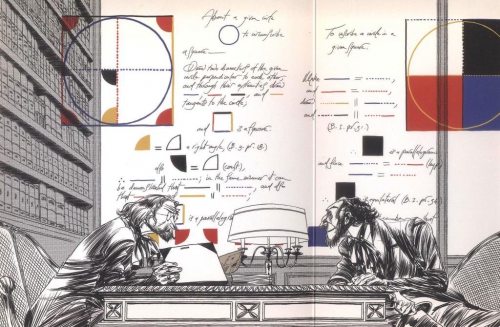 About a given circle
to circumscribe
a square.
Draw two diameters of the given
circle perpendicular to each other,
and through their extremities draw
, and
tangents to the circle,
and is a square.
= a right angle, (B. 3. pr. 18.)
also = (const.),
∴ || ; in the same manner it can
be demonstrated that || , and also
that
is a parallelogram
To inscribe a circle in a
given square.
Make = ,
and = ,
draw || ,
and || 
(B. 1. pr. 31.)
∴ is a parallelogram
and since = (hyp.)
∴ equilateral (B. 1. pr. 34.)
manner